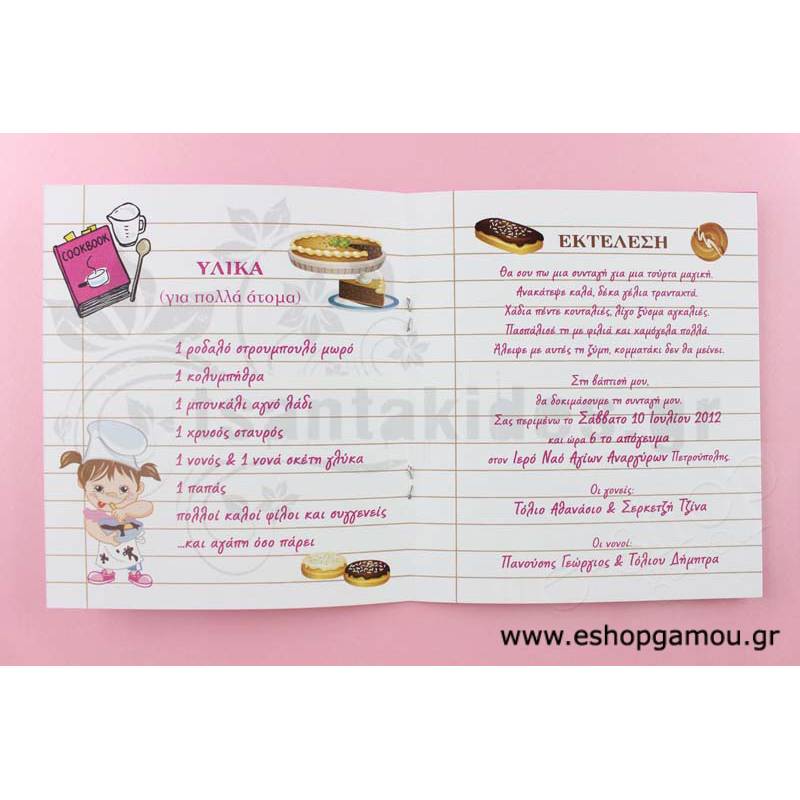 COOKBOOK
ΥΛΙΚΑ
(για πολλά άτομα)
1 ροδαλό στρουμπουλό μωρό
1 κολυμπήθρα
1 μπουκάλι αγνό λάδι
1 χρυσός σταυρός
1 νονός & 1 νονά σκέτη γλύκα
1 παπάς
πολλοί καλοί φίλοι και συγγενείς
...και αγάπη όσο πάρει
ΕΚΤΕΛΕΣΗ
Θα σου πω μια συνταγή για μια τούρτα μαγική.
Ανακάτεψε καλά, δέκα γέλια τρανταχτά.
Χάδια πέντε κουταλιές, λίγο ξύσμα αγκαλιές.
Πασπάλισέ τη με φιλιά και χαμόγελα πολλά.
Άλειψε με αυτές τη ζύμη, κομματάκι δεν θα μείνει.
Στη βάπτισή μου,
θα δοκιμάσουμε τη συνταγή μου.
Σας περιμένω το Σάββατο 10 Ιουλίου 2012
και ώρα 6 το απόγευμα
στον Ιερό Ναό Αγίων Αναργύρων Πετρούπολης.
Οι γονείς:
Τόλιο Αθανάσιο & Σερκετζή Τζίνα
Οι νονοί:
Πανούσης Γεώργιος & Τόλιου Δήμητρα
www.eshopgamou.gr